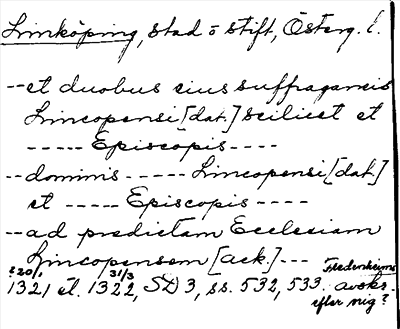 Linköping, stad o stift, Österg. l.
--et duobus eius suffraganeis
Lincopensi [dat.] scilicet et
----- Episcopis ----
--dominis ----- Lincopensi [dat.]
et ----- Episcopis ----
--ad predictam Ecclesiam
Lincopensem [ack.] ---
?20/1 31/3 Fredenheims
1321 el. 1322, SD 3, ss. 532, 533. avskr.
efter mig?